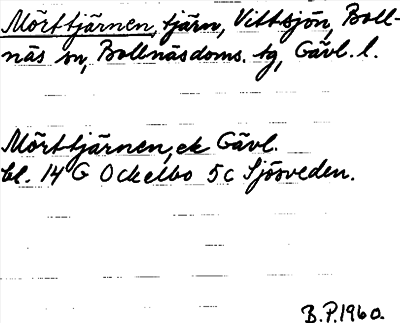 Mörttjärnen, tjärn, Vittsjön, Boll-
näs sn, Bollnäsdoms. tg, Gävl. l.
Mörttjärnen, ek Gävl.
bl. 14 G Ockelbo 5c Sjösveden.
B.P. 1960.